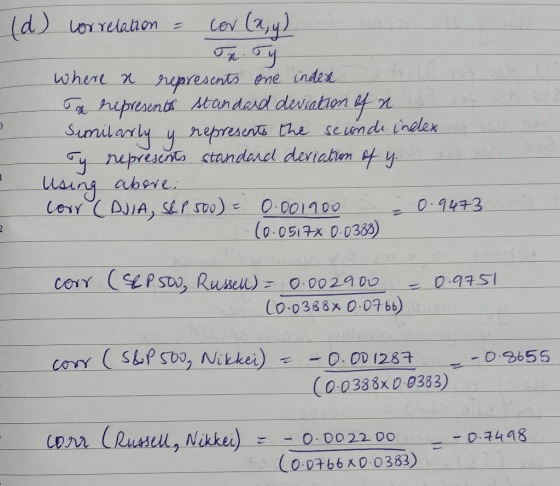 (d) Correlation = cov (x,y) / σx . σy
where x represents one index
σx represents standard deviation of x
Similarly y represents the second index
σy represents standard deviation of y.
Using above:
corr ( DJIA, S&P 500) = 0.001900 / (0.0517 x 0.0388) = 0.9473
corr ( S&P 500, Russell) = 0.002900 / (0.0388 x 0.0766) = 0.9751
corr ( S&P 500, Nikkei) = - 0.001287 / (0.0388 x 0.0383) = - 0.8655
corr (Russell, Nikkei) = - 0.002200 / (0.0766 x 0.0383) = - 0.7498